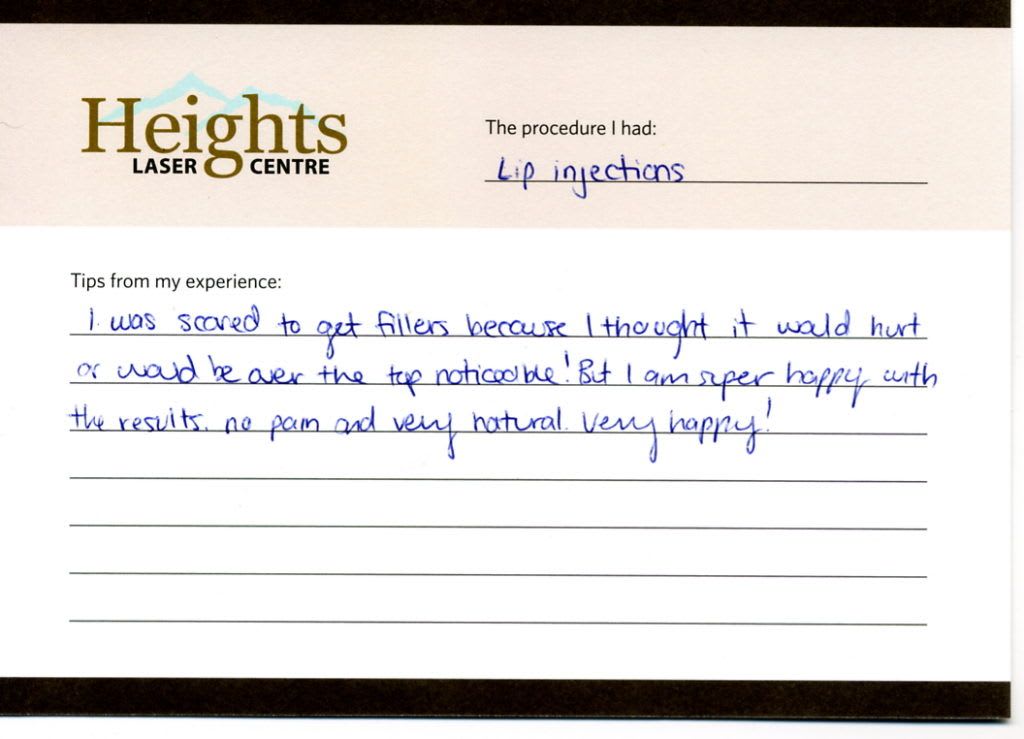 Heights
LASER CENTRE
The procedure I had:
Lip injections
Tips from my experience:
I was scared to get fillers because I thought it would hurt
or would be over the top noticeable! But I am super happy with
the results. no pain and very natural. Very happy!